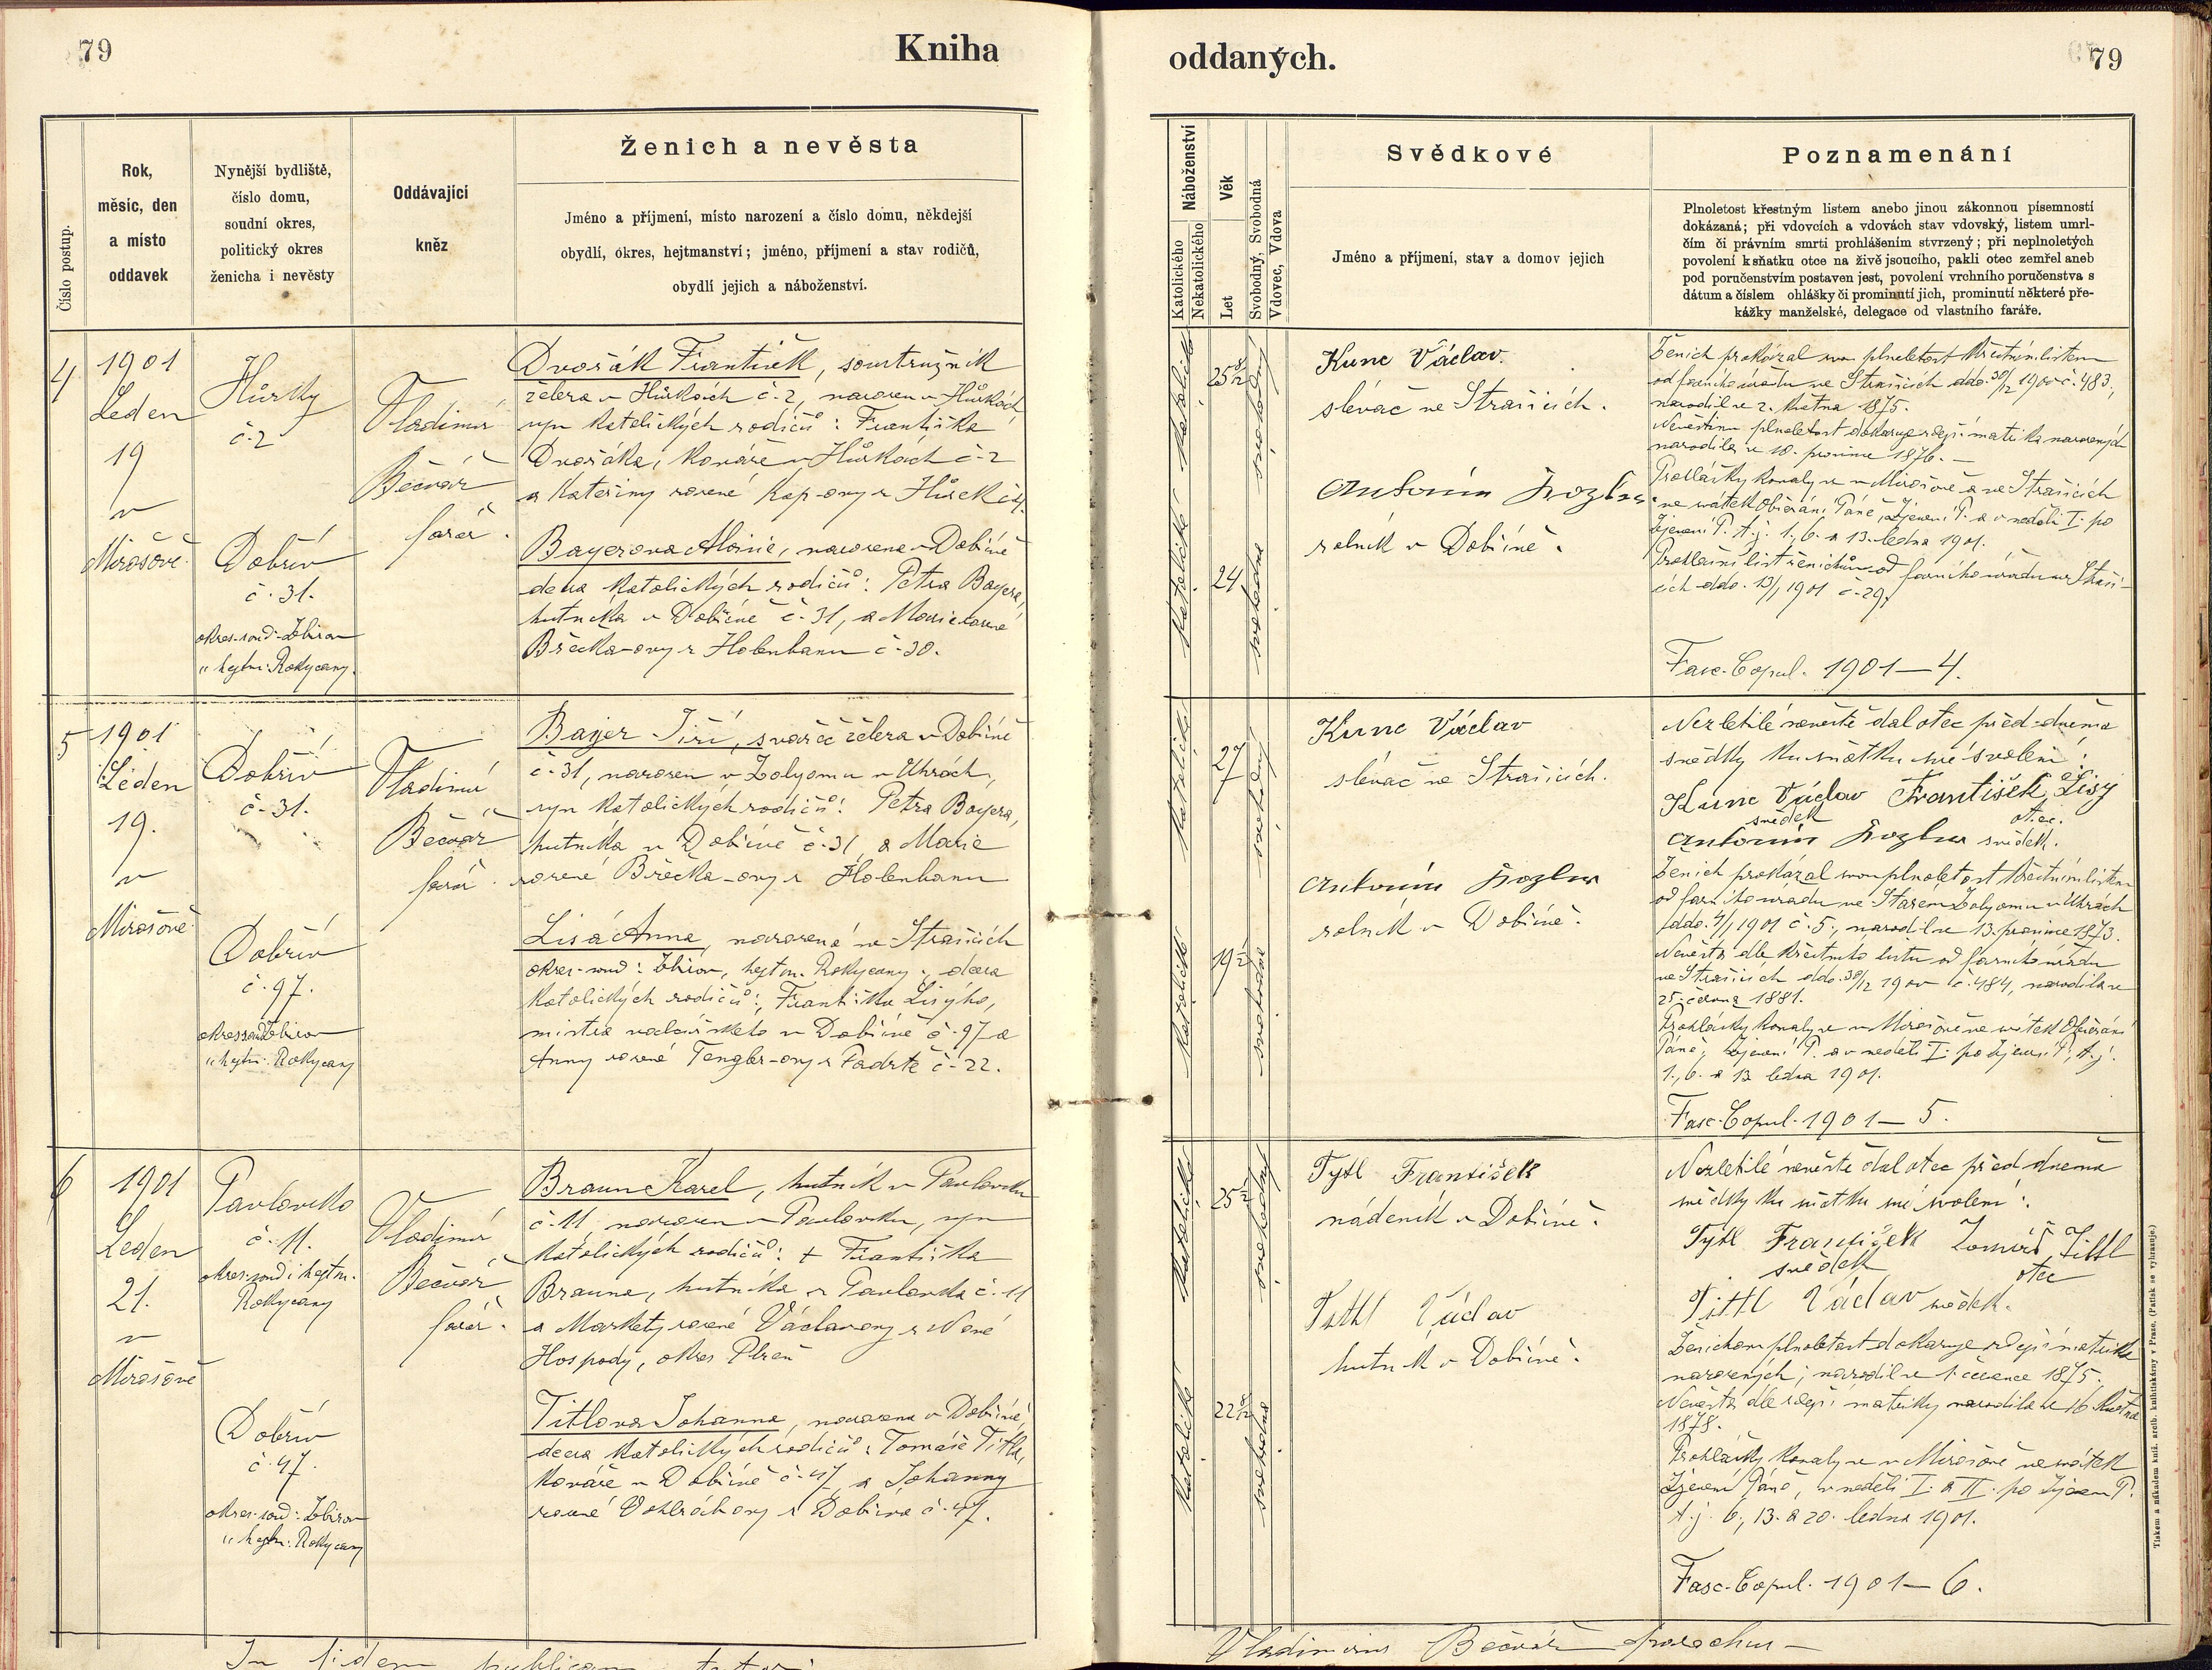 79
Kniha
oddaných.
79
Číslo postup.
Rok,
měsíc, den
a místo
oddavek
Nynější bydliště,
číslo domu,
soudní okres,
politický okres
ženicha i nevěsty
Oddávající
kněz
Ženich a nevěsta
Jméno a příjmení, místo narození a číslo domu, někdejší
obydlí, okres, hejtmanství; jméno, příjmení a stav rodičů,
obydlí jejich a náboženství.
Náboženství
Katolického
Nekatolického
Věk
Let
Svobodný, Svobodná
Vdovec, Vdova
Svědkové
Jméno a příjmení, stav a domov jejich
Poznamenání
Plnoletost křestným listem anebo jinou zákonnou písemností
dokázaná; při vdovcích a vdovách stav vdovský, listem umrl-
čím či právním smrti prohlášením stvrzený; při neplnoletých
povolení k sňatku otce na živě jsoucího, pakli otec zemřel aneb
pod poručenstvím postaven jest, povolení vrchního poručenstva s
dátum a číslem ohlášky či prominutí jich, prominutí některé pře-
kážky manželské, delegace od vlastního faráře.
4
1901
Leden
19
v
Mirošově
Hůrky
č. 2
Dobřív
č. 31.
okres. soud: Zbirov
" hejtm: Rokycany.
Vladimír
Bečvář
farář.
Dvořák František, soustružník
železa v Hůrkách č. 2, narozen v Hůrkách
syn katolických rodičů: Františka
Dvořáka, kováře v Hůrkách č. 2
a Kateřiny rozené Kap-ovy z Hůrek č. 4.
Bayerova Marie, narozena v Dobřívě
dcera katolických rodičů: Petra Bayera,
hutníka v Dobřívě č. 31, a Marie rozené
Břečka-ovy z Holoubkova č. 30.
katolické
25 8/12
svobodný
katolické
24
svobodná
Kunc Václav.
slévač ve Strašicích.
Antonín
rolník v Dobřívě.
Ženich prokázal svou plnoletost křestním listem
od farního úřadu ve Strašicích ddo. 30/12 1900 č. 483,
narodil se 2. května 1875.
Nevěstinu plnoletost dokazuje zdejší matrika narozených
narodila se 10. prosince 1876. –
Prohlášky konaly se v Mirošově a ve Strašicích
ve svátek Obřezání Páně, Zjevení P. a v neděli I. po
Zjevení P. t. j. 1., 6. a 13. ledna 1901.
Prohlašní list ženichův od farního úřadu ve Straši-
cích ddo. 13/1 1901 č. 29.
Fasc. Copul. 1901 – 4.
5
1901
Leden
19.
v
Mirošově
Dobřív
č. 31.
Dobřív
č. 97.
okres soud Zbirov
" hejtm: Rokycany
Vladimír
Bečvář
farář.
Bayer Jiří, svářeč železa v Dobřívě
č. 31, narozen v Zolyomu v Uhrách,
syn katolických rodičů: Petra Bayera,
hutníka v Dobřívě č. 31, a Marie
rozené Břečka-ovy z Holoubkova
Lisá Anna, narozená ve Strašicích
okres. soud: Zbirov, hejtm. Rokycany, dcera
katolických rodičů: Františka Lisýho,
mistra válcířského v Dobřívě č. 97 a
Anny rozené Tengler-ovy z Padrtě č. 22.
katolické
27
svobodný
katolické
19 1/2
svobodná
Kunc Václav
slévač ve Strašicích.
Antonín
rolník v Dobřívě.
Nezletilé nevěstě dal otec před dvěma
svědky ku sňatku své svolení:
Kunc Václav František Lisý
svědek otec.
Antonín svědek.
Ženich prokázal svou plnoletost křestním listem
od farního úřadu ve Starém Zolyomu v Uhrách
ddo. 4/1 1901 č. 5., narodil se 13. prosince 1873.
Nevěsta dle křestního listu od farního úřadu
ve Strašicích ddo. 30/12 1900 č. 484, narodila se
25. června 1881.
Prohlášky konaly se v Mirošově ve svátek Obřezání
Páně, Zjevení P. a v neděli I. po Zjevení P., t. j.
1., 6. a 13 ledna 1901.
Fasc. Copul. 1901 – 5.
6
1901
Leden
21.
v
Mirošově
Pavlovsko
č. 11.
okres. soud i hejtm.
Rokycany
Dobřív
č. 47.
okres. soud: Zbirov
" hejtm: Rokycany
Vladimír
Bečvář
farář.
Braun Karel, hutník v Pavlovsku
č. 11 narozen v Pavlovsku, syn
katolických rodičů: † Františka
Brauna, hutníka z Pavlovska č. 11
a Markety rozené Václavovy z Nové
Hospody, okres Plzeň
Titlova Johanna, narozena v Dobřívě,
dcera katolických rodičů: Tomáše Titla,
kováře v Dobřívě č. 47, a Johanny
rozené z Dobříva č. 47.
katolické
25 1/2
svobodný
katolické
22 8/12
svobodná
Tytl František
nádeník v Dobřívě.
Tittl Václav
hutník v Dobřívě.
Nezletilé nevěstě dal otec před dvěma
svědky ku sňatku své svolení:
Tytl František Tomáš Tittl
svědek otec
Tittl Václav svědek.
Ženichovu plnoletost dokazuje zdejší matrika
narozených; narodil se 1. července 1875.
Nevěsta dle zdejší matriky narodila se 16 května
1878.
Prohlášky konaly se v Mirošově ve svátek
Zjevení Páně, v neděli I. a II. po Zjevení P.
t. j. 6., 13. a 20. ledna 1901.
Fasc. Copul. 1901 – 6.
Tiskem a nákladem kníž. arcib. knihtiskárny v Praze. (Patisk se vyhrazuje.)
In fidem publicam
Vladimirus Bečvář parochus –